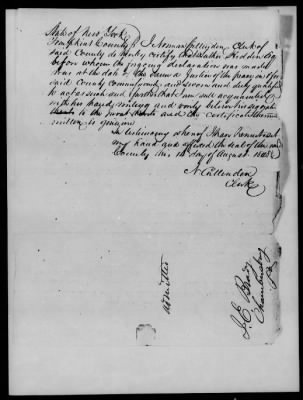 State of New York
Tompkins County ss I Norman Crittenden Clerk of
said County do hereby certify that
before whom the foregoing declaration was made
was at the date of the same a Justice of the peace in & for
said County commissioned and sworn and duly qualified
to act as such and further that I am well acquainted
with his hand writing and verily believe his signature
to the jurat and certificate thereon
written is genuine
In testimony whereof I have hereunto set
my hand and affixed the seal of the said
County this day of August
N Crittenden
Clerk
admitted
J. E. Brady
Chambersburg
Pa